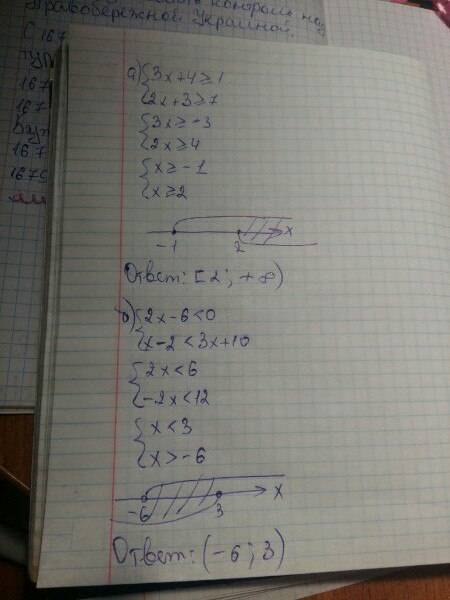 контроль над
Правобережной Украиной.
167
167
167
167
а) { 3x+4≥1
{ 2x+3≥7
{ 3x≥-3
{ 2x≥4
{ x≥-1
{ x≥2
-1 2 x
Ответ: [2; +∞)
б) { 2x-6<0
{ x-2<3x+10
{ 2x<6
{ -2x<12
{ x<3
{ x>-6
-6 3 x
Ответ: (-6; 3)